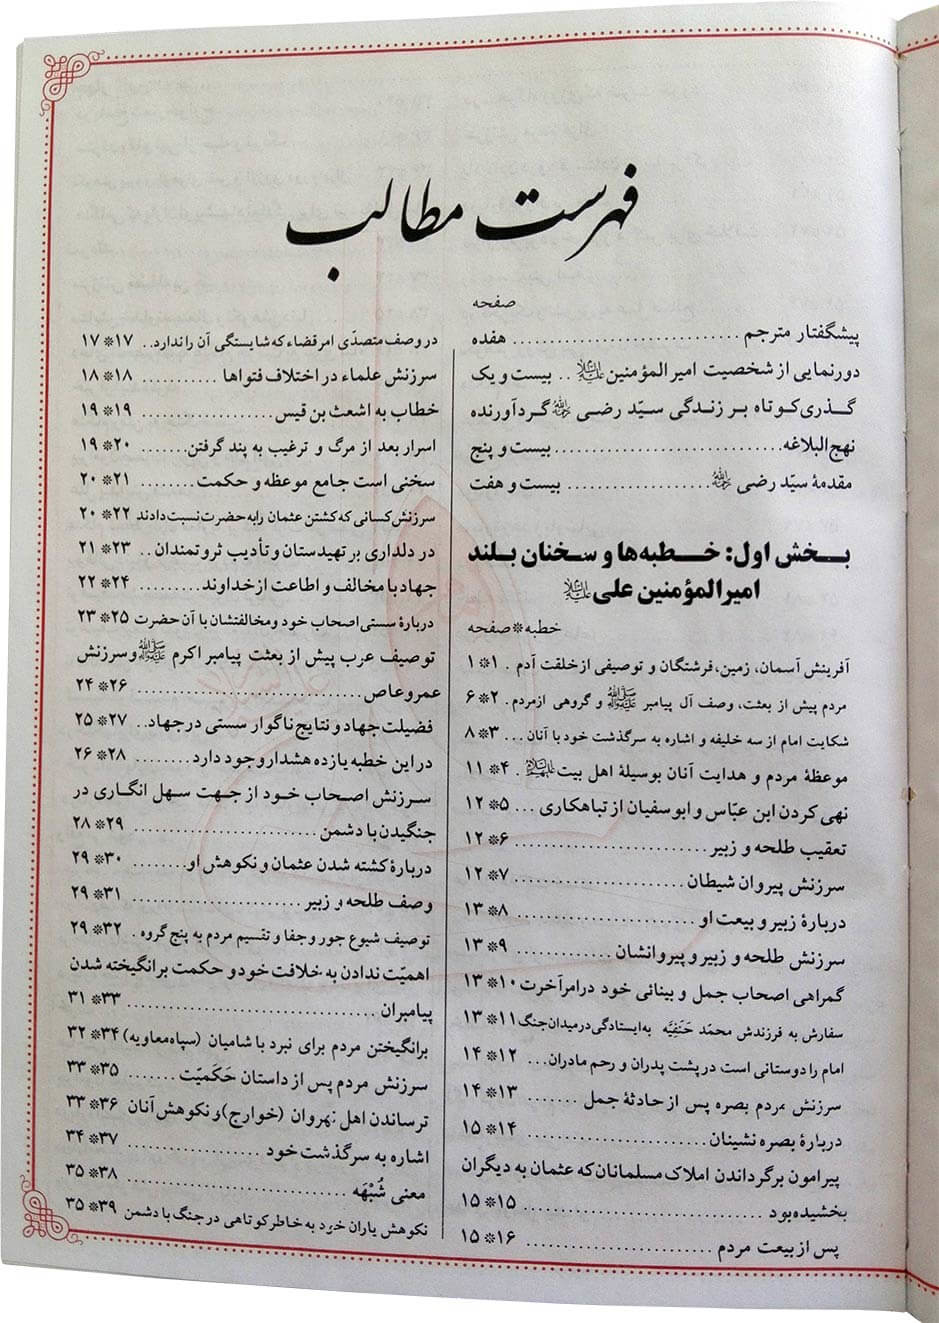 فهرست مطالب
صفحه
پیشگفتار مترجم .......................... هفده
دورنمایی از شخصیت امیرالمؤمنین علیه‌السلام .. بیست و یک
گذری کوتاه بر زندگی سیّد رضی رحمه‌الله گردآورنده
نهج‌البلاغه .......................... بیست و پنج
مقدمهٔ سیّد رضی رحمه‌الله .................. بیست و هفت
بخش اول: خطبه‌ها و سخنان بلند
امیرالمؤمنین علی علیه‌السلام
خطبه*صفحه
آفرینش آسمان، زمین، فرشتگان و توصیفی از خلقت آدم . ۱*۱
مردم پیش از بعثت، وصف آل پیامبر ﷺ و گروهی از مردم . ۲*۶
شکایت امام از سه خلیفه و اشاره به سرگذشت خود با آنان ... ۳*۸
موعظهٔ مردم و هدایت آنان بوسیلهٔ اهل بیت علیهم‌السلام . ۴*۱۱
نهی کردن ابن عبّاس و ابوسفیان از تباهکاری ... ۵*۱۲
تعقیب طلحه و زبیر .................... ۶*۱۲
سرزنش پیروان شیطان .................... ۷*۱۲
دربارهٔ زبیر و بیعت او .................... ۸*۱۳
سرزنش طلحه و زبیر و پیروانشان ............ ۹*۱۳
گمراهی اصحاب جمل و بینائی خود در امر آخرت ۱۰*۱۳
سفارش به فرزندش محمّد حَنَفِیَّه به ایستادگی در میدان جنگ ۱۱*۱۳
امام را دوستانی است در پشت پدران و رحم مادران ... ۱۲*۱۴
سرزنش مردم بصره پس از حادثهٔ جمل ....... ۱۳*۱۴
دربارهٔ بصره نشینان .................... ۱۴*۱۵
پیرامون برگرداندن املاک مسلمانان که عثمان به دیگران
بخشیده بود .................... ۱۵*۱۵
پس از بیعت مردم .................... ۱۶*۱۵
در وصف متصدّی امر قضاء که شایستگی آن را ندارد .. ۱۷*۱۷
سرزنش علماء در اختلاف فتواها .......... ۱۸*۱۸
خطاب به اشعث بن قیس .................. ۱۹*۱۹
اسرار بعد از مرگ و ترغیب به پند گرفتن ....... ۲۰*۱۹
سخنی است جامع موعظه و حکمت ........ ۲۱*۲۰
سرزنش کسانی که کشتن عثمان را به حضرت نسبت دادند ۲۲*۲۰
در دلداری بر تهیدستان و تأدیب ثروتمندان .. ۲۳*۲۱
جهاد با مخالف و اطاعت از خداوند .......... ۲۴*۲۲
دربارهٔ سستی اصحاب خود و مخالفتشان با آن حضرت ۲۵*۲۳
توصیف عرب پیش از بعثت پیامبر اکرم ﷺ و سرزنش
عمروعاص .................... ۲۶*۲۴
فضیلت جهاد و نتایج ناگوار سستی در جهاد .. ۲۷*۲۵
در این خطبه یازده هشدار وجود دارد ........ ۲۸*۲۶
سرزنش اصحاب خود از جهت سهل انگاری در
جنگیدن با دشمن .................... ۲۹*۲۸
دربارهٔ کشته شدن عثمان و نکوهش او ........ ۳۰*۲۹
وصف طلحه و زبیر .................... ۳۱*۲۹
توصیف شیوع جور و جفا و تقسیم مردم به پنج گروه . ۳۲*۲۹
اهمیّت ندادن به خلافت خود و حکمت برانگیخته شدن
پیامبران .................... ۳۳*۳۱
برانگیختن مردم برای نبرد با شامیان (سپاه معاویه) ۳۴*۳۲
سرزنش مردم پس از داستان حَکَمیّت ....... ۳۵*۳۳
ترساندن اهل نهروان (خوارج) و نکوهش آنان ۳۶*۳۳
اشاره به سرگذشت خود .................. ۳۷*۳۴
معنی شُبْهَه .................... ۳۸*۳۵
نکوهش یاران خود به خاطر کوتاهی در جنگ با دشمن ۳۹*۳۵